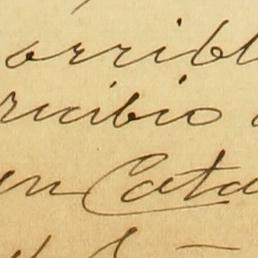 orribl
recibio
en Cata